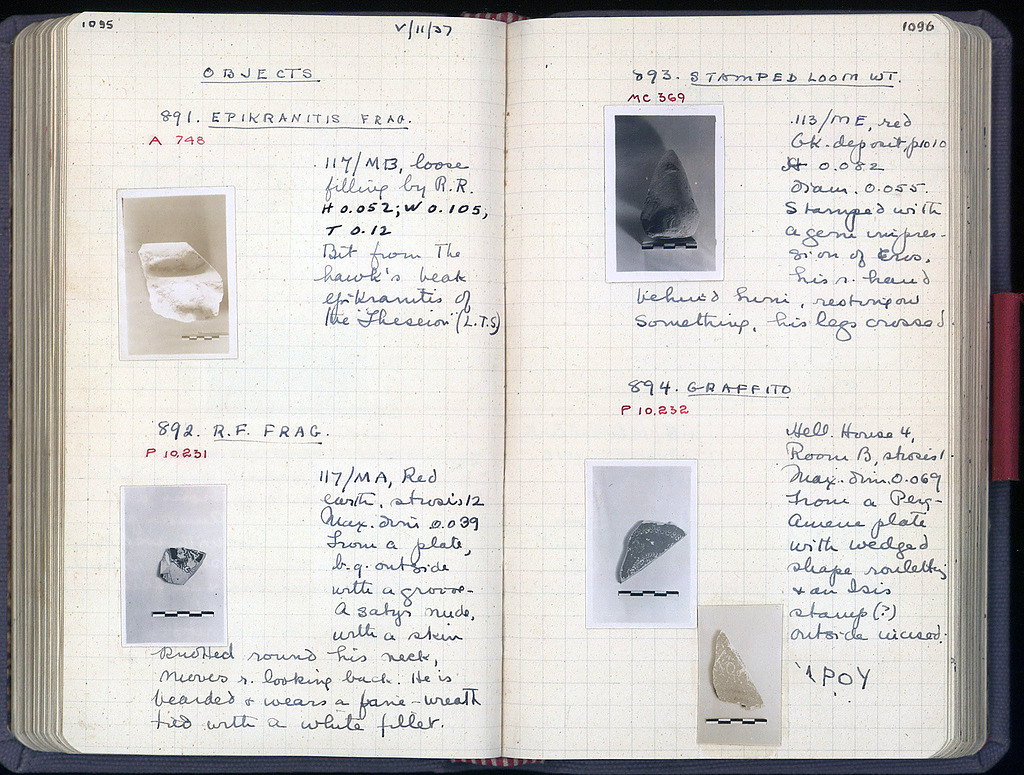 1095
V/11/37
OBJECTS
891. EPIKRANITIS FRAG.
A 748
117/MB, loose
filling by R.R.
H 0.052; W 0.105,
T 0.12
Bit from the
hawk's beak
epikranitis of
the "Theseion" (L.T.S)
892. R.F. FRAG.
P 10,231
117/MA, Red
earth, strosis 12
Max. dim. 0.039
From a plate,
b.g. outside
with a groove.
A satyr nude,
with a skin
knotted round his neck,
moves r. looking back. He is
bearded & wears a pine-wreath
tied with a white fillet.
1096
893. STAMPED LOOM WT.
MC 369
113/ME, red
Gk. deposit, p 1010
H 0.082
Diam. 0.055.
Stamped with
a gem impres-
sion of Eros,
his r. hand
behind him, resting on
something, his legs crossed.
894. GRAFFITO
P 10,232
Hell. House 4,
Room B, strosis 1.
Max. dim. 0.069
From a Perg-
amene plate
with wedge
shape rouletting
& an Isis
stamp (?)
outside incised.
ΑΡΟΥ